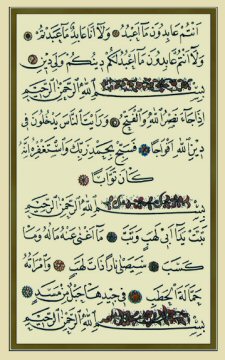 أَنتُمْ عَابِدُونَ مَا أَعْبُدُ وَلَا أَنَا عَابِدٌ مَا عَبَدتُّمْ
وَلَا أَنتُمْ عَابِدُونَ مَا أَعْبُدُ لَكُمْ دِينُكُمْ وَلِيَ دِينِ
بِسْمِ اللَّهِ الرَّحْمَٰنِ الرَّحِيمِ
إِذَا جَاءَ نَصْرُ اللَّهِ وَالْفَتْحُ وَرَأَيْتَ النَّاسَ يَدْخُلُونَ فِي
دِينِ اللَّهِ أَفْوَاجًا فَسَبِّحْ بِحَمْدِ رَبِّكَ وَاسْتَغْفِرْهُ إِنَّهُ
كَانَ تَوَّابًا
بِسْمِ اللَّهِ الرَّحْمَٰنِ الرَّحِيمِ
تَبَّتْ يَدَا أَبِي لَهَبٍ وَتَبَّ مَا أَغْنَىٰ عَنْهُ مَالُهُ وَمَا
كَسَبَ سَيَصْلَىٰ نَارًا ذَاتَ لَهَبٍ وَامْرَأَتُهُ
حَمَّالَةَ الْحَطَبِ فِي جِيدِهَا حَبْلٌ مِنْ مَسَدٍ
بِسْمِ اللَّهِ الرَّحْمَٰنِ الرَّحِيمِ